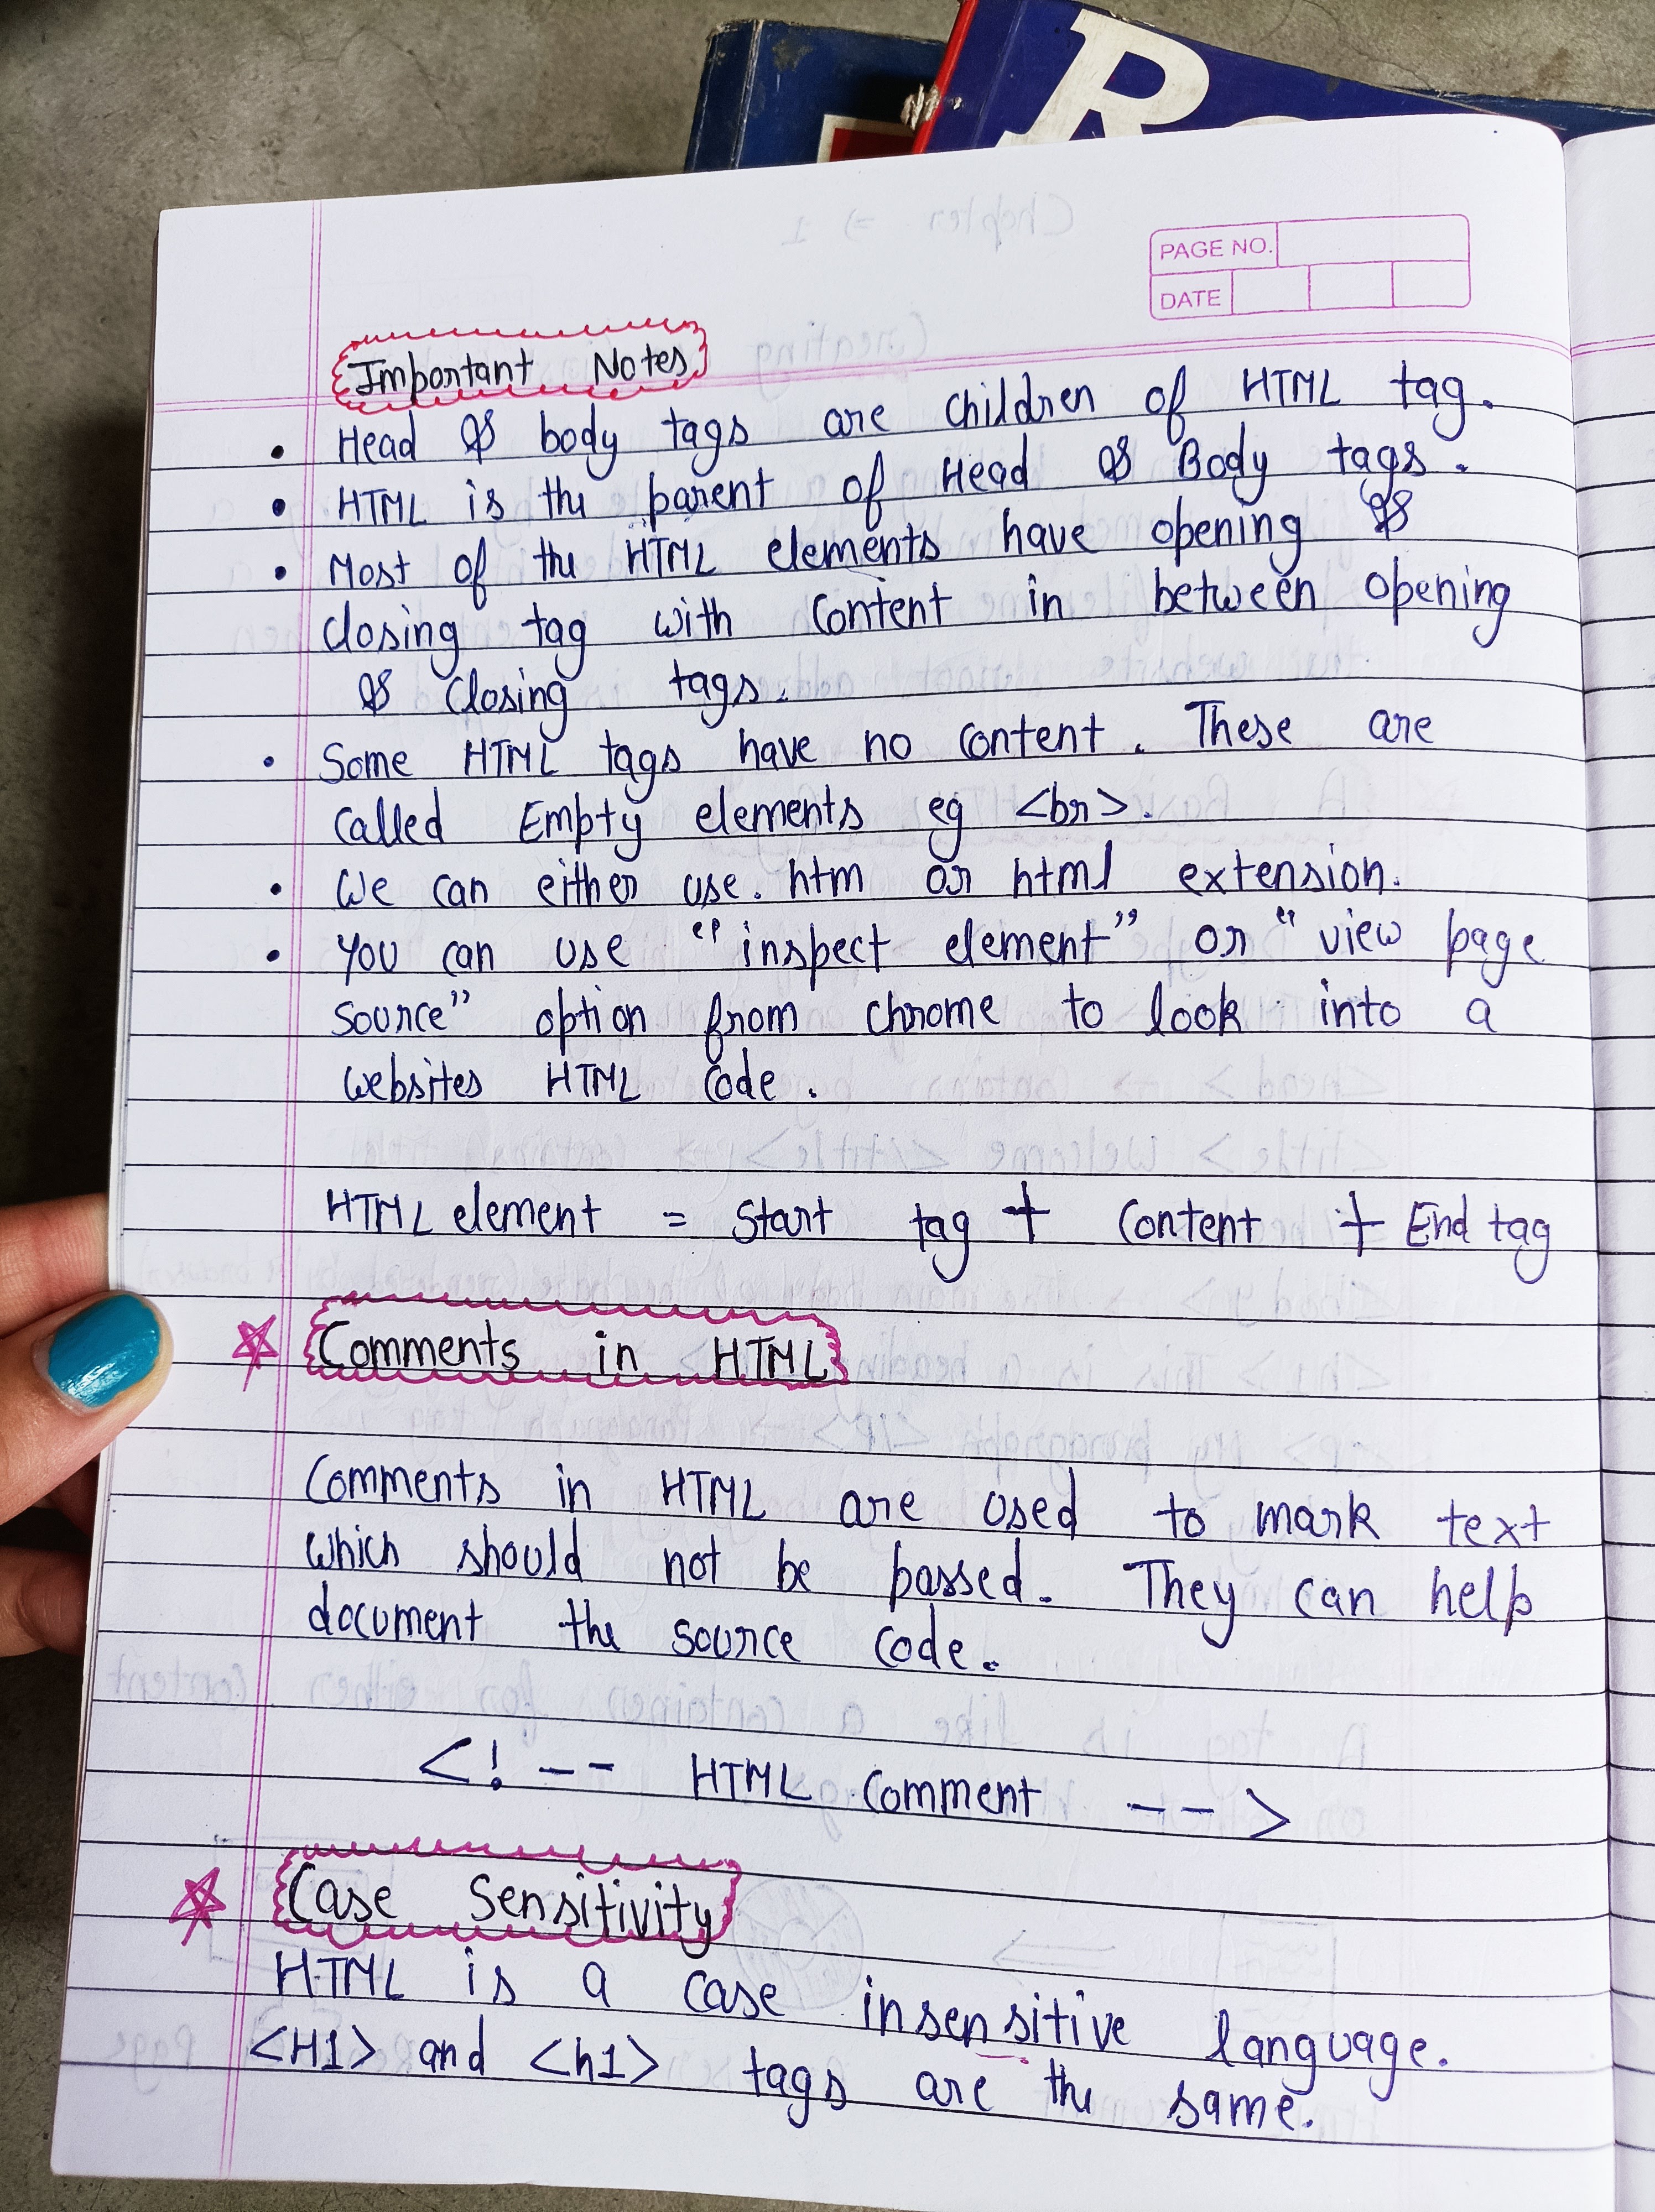 R
PAGE NO.
DATE
Important Notes
• Head & body tags are children of HTML tag.
• HTML is the parent of Head & Body tags.
• Most of the HTML elements have opening &
closing tag with content in between opening
& closing tags.
• Some HTML tags have no content. These are
called Empty elements eg <br>.
• We can either use .htm or html extension.
• You can use "inspect element" or "view page
source" option from chrome to look into a
websites HTML code.
HTML element = Start tag + Content + End tag
Comments in HTML
Comments in HTML are used to mark text
which should not be passed. They can help
document the source code.
<!-- HTML Comment -->
Case Sensitivity
HTML is a case insensitive language.
<H1> and <h1> tags are the same.